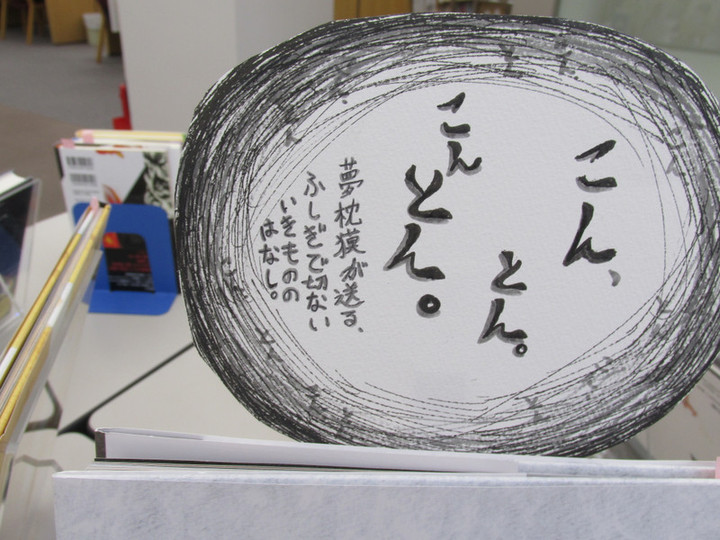 こん、
とん。
こん
とん。
夢枕獏が送る、
ふしぎで切ない
いきものの
はなし。